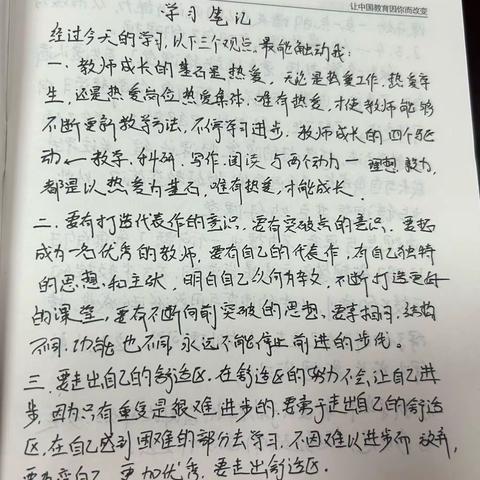 让中国教育因你而改变
学习笔记
经过今天的学习,以下三个观点,最能触动我:
一、教师成长的基石是热爱,无论是热爱工作,热爱学
生,还是热爱岗位热爱集体,唯有热爱,才使教师能够
不断更新教学方法,不停学习进步.教师成长的四个驱
动—教学、科研、写作、阅读与两个动力—理想、毅力,
都是以热爱为基石,唯有热爱,才能成长.
二、要有打造代表作的意识,要有突破点的意识.要想
成为一名优秀的教师,要有自己的代表作,有自己独特
的思想和主张,明白自己从何,不断打造更好
的课堂,要有不断向前突破的思想,结构
不同,功能也不同,永远不能停止前进的步伐。
三、要走出自己的舒适区.在舒适区的努力不会让自己进
步,因为只有重复是很难进步的,要走出自己的舒适
区,在自己感到困难的部分去学习,不因难以进步而放弃,
自己,更加优秀,要走出舒适区.